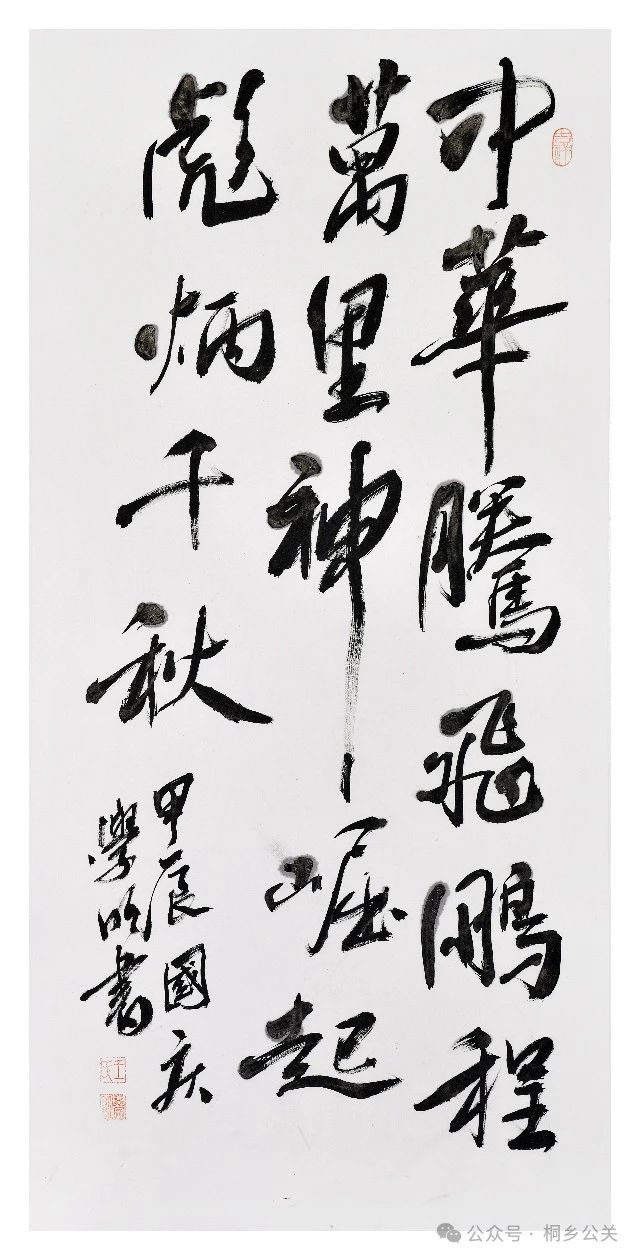 中華騰飛鵬程
萬里神崛起
彪炳千秋
甲辰國庆
學明書
公众号 · 桐乡公关